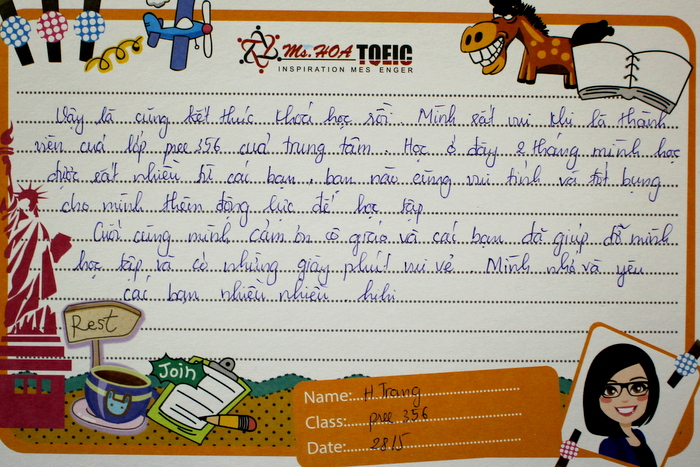 Ms. HOA TOEIC
INSPIRATION MES ENGER
Vậy là cũng kết thúc khoá học rồi. Mình rất vui khi là thành
viên của lớp pree 356 của trung tâm. Học ở đây 2 tháng mình học
được rất nhiều từ các bạn, bạn nào cũng vui tính và tốt bụng
cho mình thêm động lực để học tập
Cuối cùng mình cảm ơn cô giáo và các bạn đã giúp đỡ mình
học tập và có những giây phút vui vẻ Mình nhớ và yêu
các bạn nhiều nhiều hihi
Rest
Join
Name: H.Trang
Class: pree 356
Date: 28/5